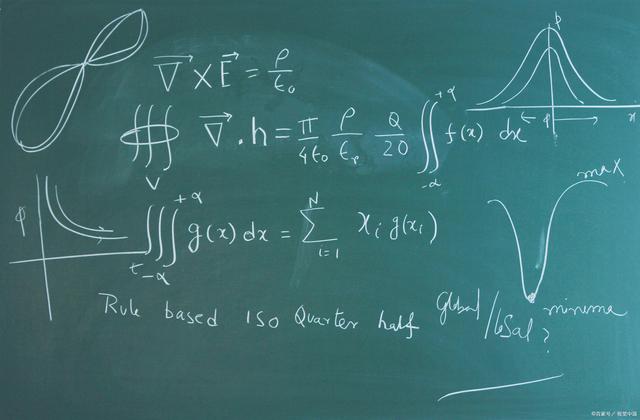 P
∇⃗ X E⃗ = ρ/ε₀
∯∫_V ∇⃗ . h = π/4ε₀ ρ/εᵣ Q/20 ∬_{-α}^{+α} f(x) dx
← φ → x
φ
t
∭_{-α}^{+α} g(x) dx = Σ_{i=1}^{N} x_i g(x_i)
max
Rule based ISO Quarter half
Global / losal minima ?
©百家号 / 视觉中国